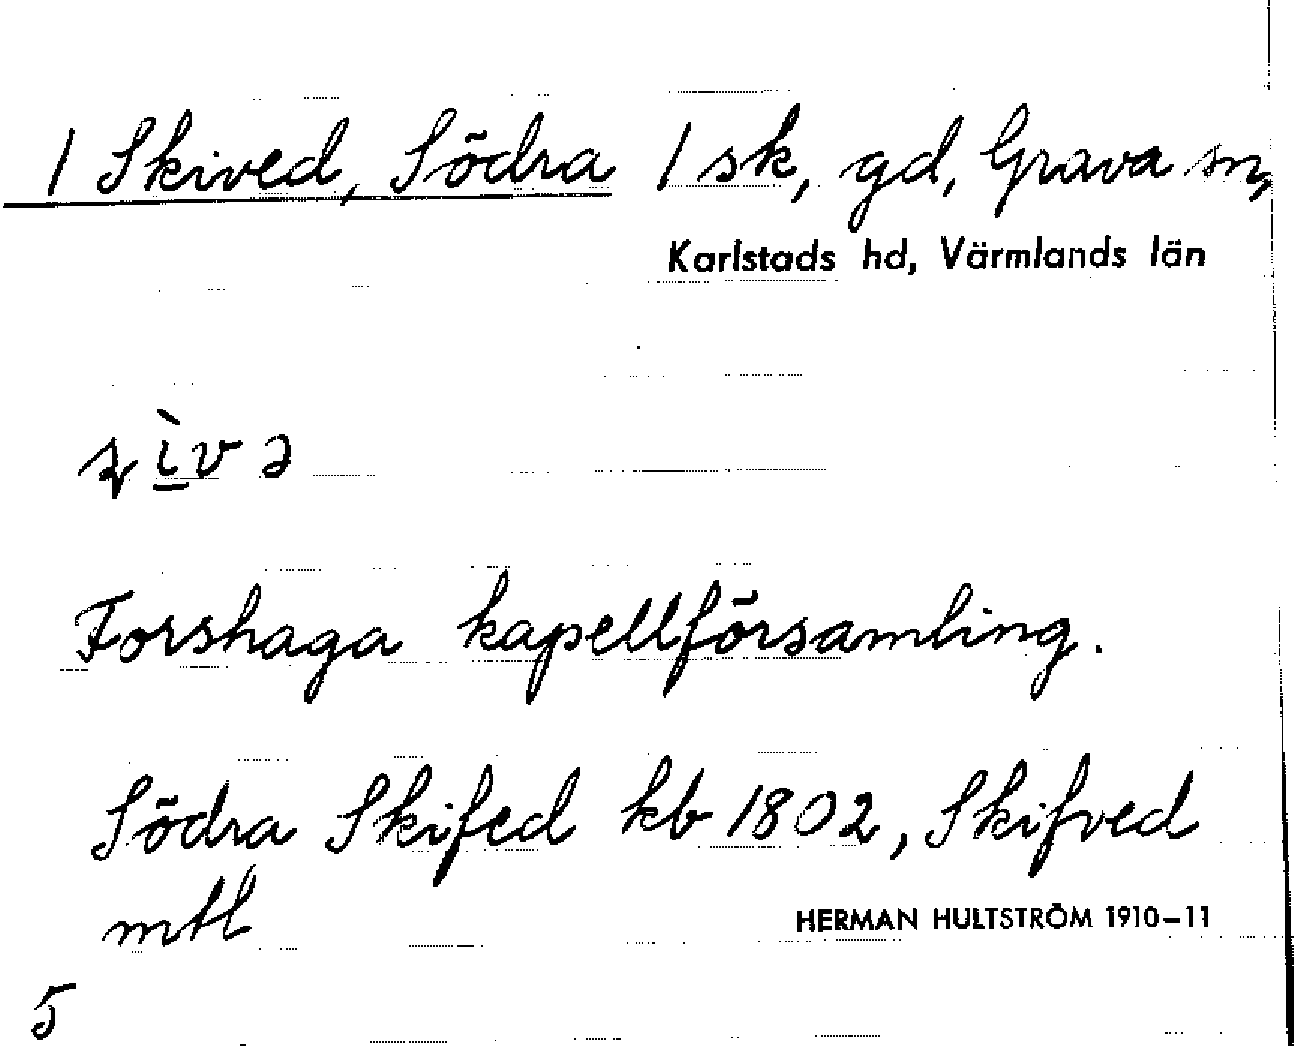 / Skived, Södra / sk, gd, Grava sn,
Karlstads hd, Värmlands län
Forshaga kapellförsamling.
Södra Skifed kb 1802, Skifved
mtl
HERMAN HULTSTRÖM 1910–11
5